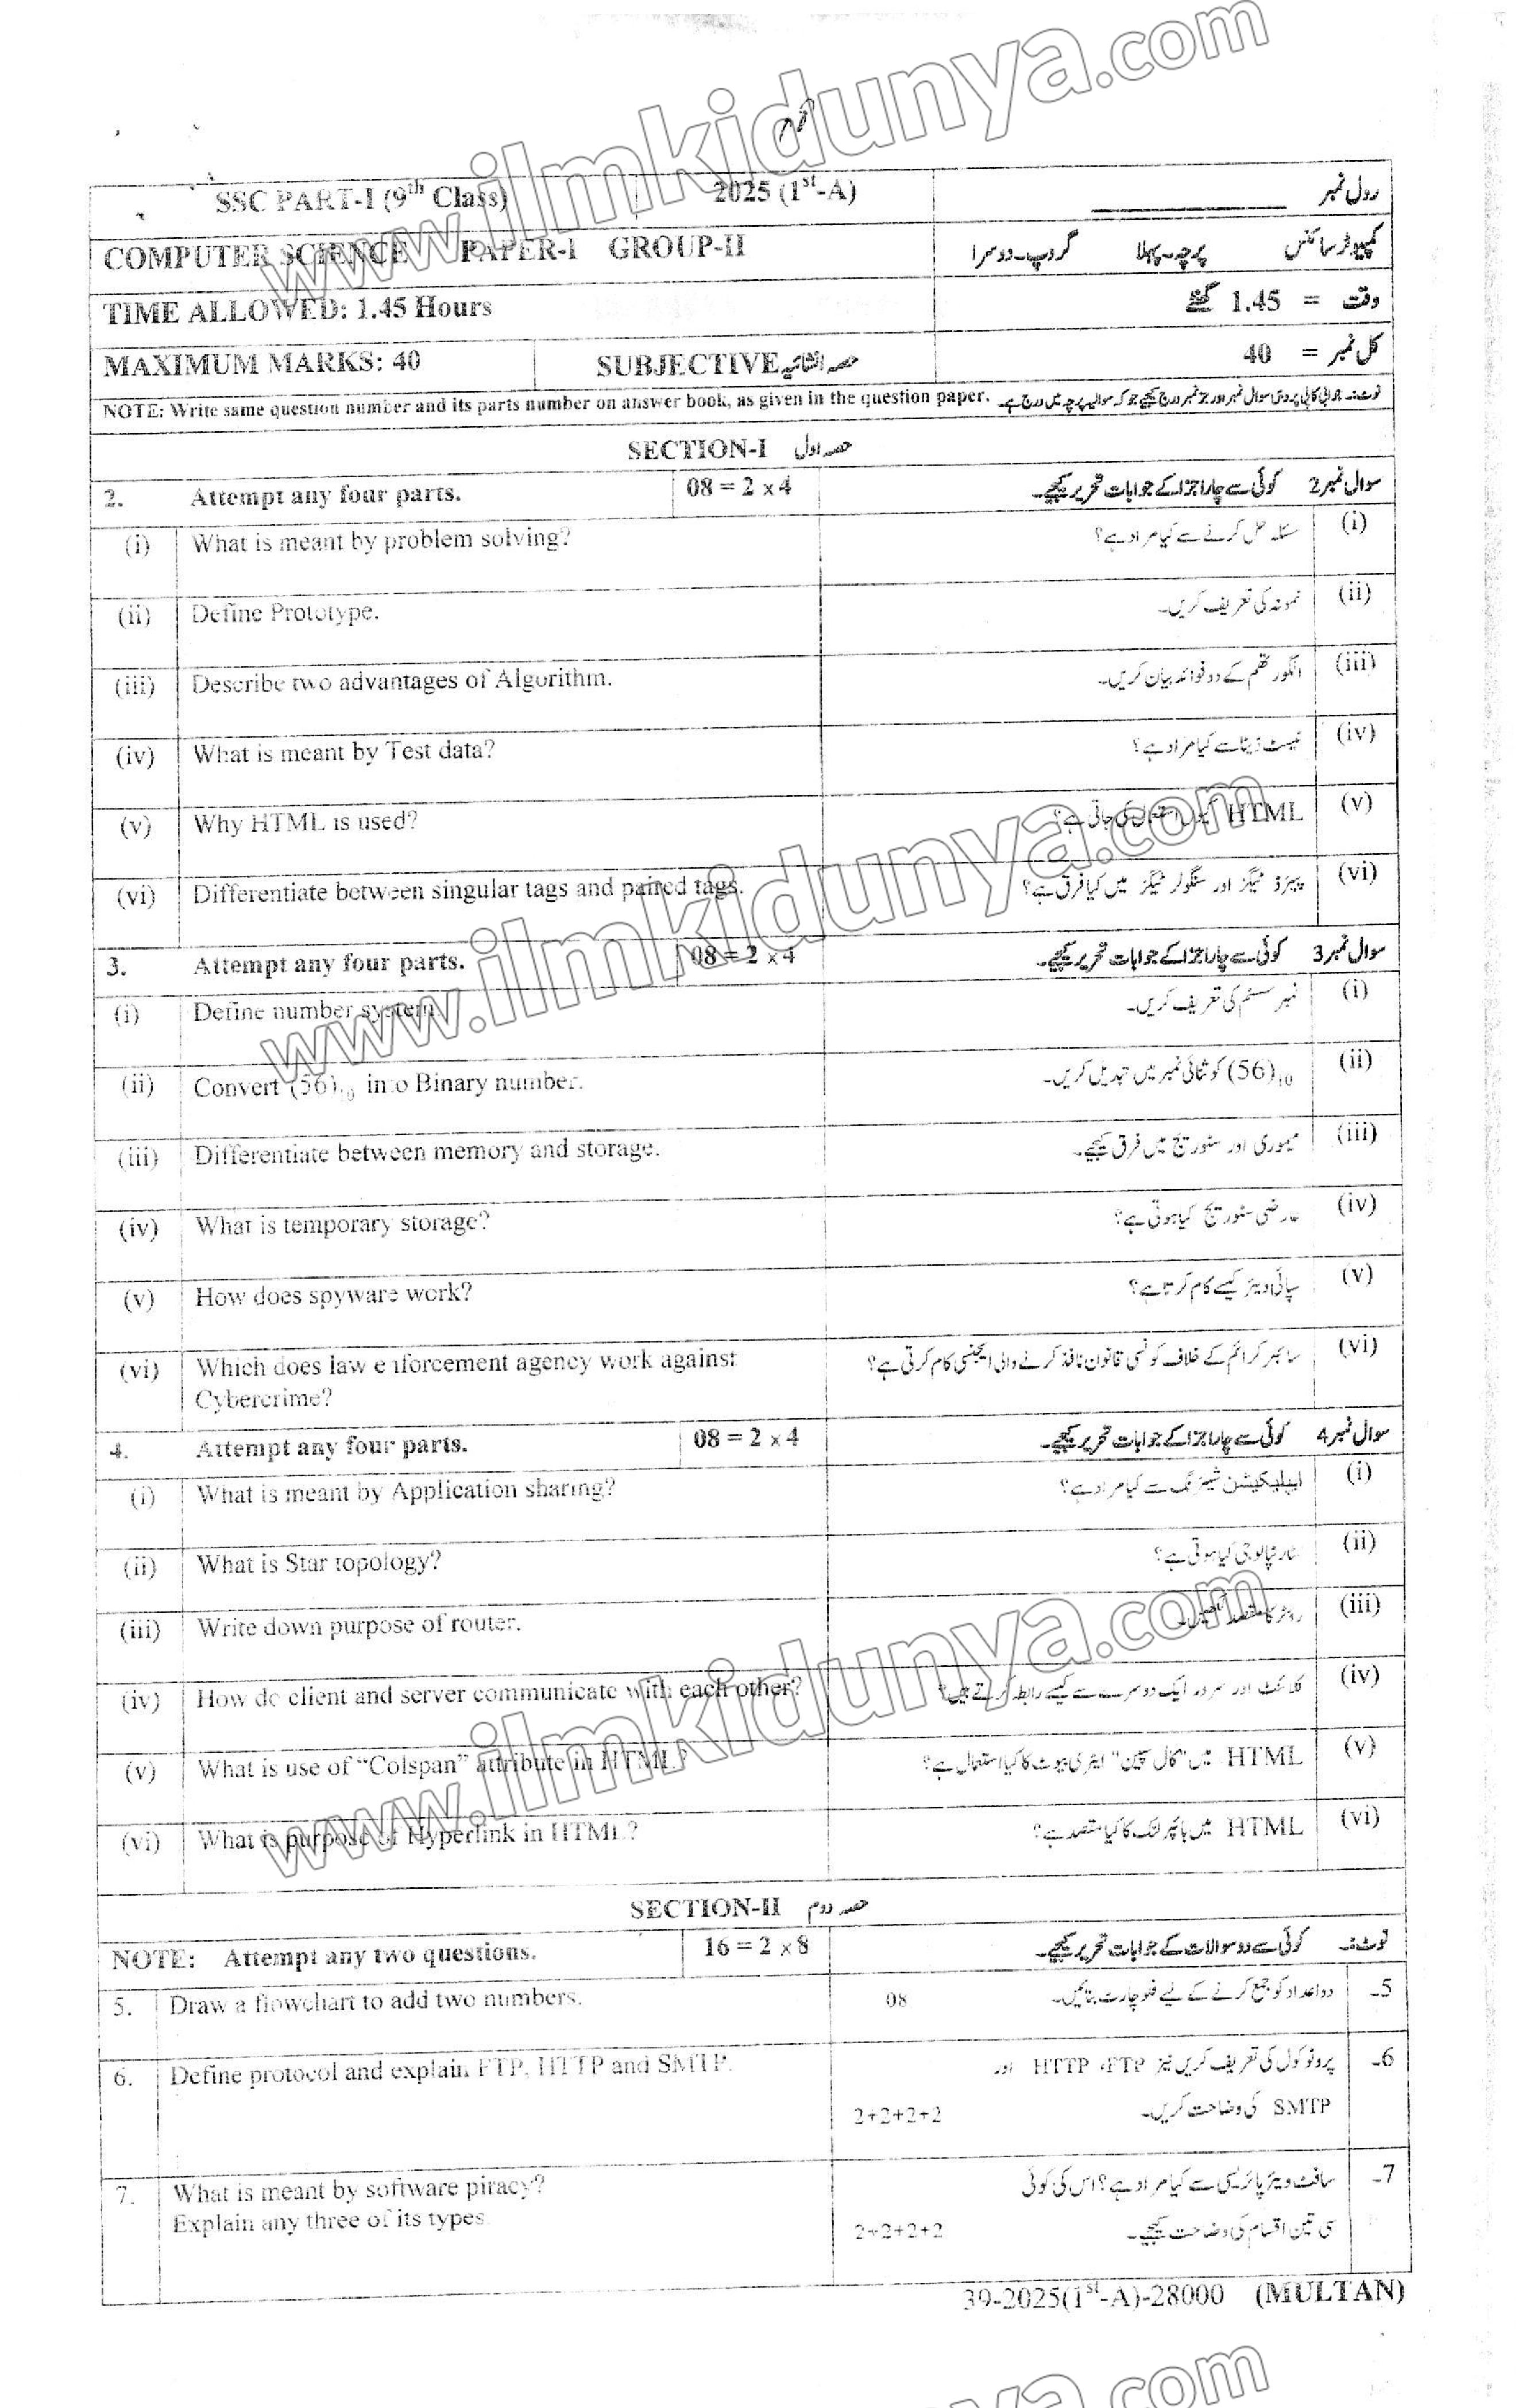 www.ilmkidunya.com
SSC PART-I (9th Class) 2025 (1st-A) رول نمبر
COMPUTER SCIENCE PAPER-I GROUP-II کمپیوٹر سائنس پرچہ۔پہلا گروپ۔دوسرا
TIME ALLOWED: 1.45 Hours وقت = 1.45 گھنٹے
MAXIMUM MARKS: 40 SUBJECTIVE حصہ انشائیہ کل نمبر = 40
NOTE: Write same question number and its parts number on answer book, as given in the question paper. نوٹ:۔ جوابی کاپی پر وہی سوال نمبر اور جز نمبر درج کیجیے جو کہ سوالیہ پرچہ میں درج ہے۔
SECTION-I حصہ اول
2. Attempt any four parts. 08 = 2 x 4 سوال نمبر 2 کوئی سے چار اجزا کے جوابات تحریر کیجیے۔
(i) What is meant by problem solving? مسئلہ حل کرنے سے کیا مراد ہے؟ (i)
(ii) Define Prototype. نمونہ کی تعریف کریں۔ (ii)
(iii) Describe two advantages of Algorithm. الگورتھم کے دو فوائد بیان کریں۔ (iii)
(iv) What is meant by Test data? ٹیسٹ ڈیٹا سے کیا مراد ہے؟ (iv)
(v) Why HTML is used? HTML کیوں استعمال کی جاتی ہے؟ (v)
(vi) Differentiate between singular tags and paired tags. پیئرڈ ٹیگز اور سنگولر ٹیگز میں کیا فرق ہے؟ (vi)
www.ilmkidunya.com
3. Attempt any four parts. 08 = 2 x 4 سوال نمبر 3 کوئی سے چار اجزا کے جوابات تحریر کیجیے۔
(i) Define number system. نمبر سسٹم کی تعریف کریں۔ (i)
(ii) Convert (56)10 into Binary number. (56)10 کو ثنائی نمبر میں تبدیل کریں۔ (ii)
(iii) Differentiate between memory and storage. میموری اور سٹوریج میں فرق کیجیے۔ (iii)
(iv) What is temporary storage? عارضی سٹوریج کیا ہوتی ہے؟ (iv)
(v) How does spyware work? سپائی ویئر کیسے کام کرتا ہے؟ (v)
(vi) Which does law enforcement agency work against سائبر کرائم کے خلاف کونسی قانون نافذ کرنے والی ایجنسی کام کرتی ہے؟ (vi)
Cybercrime?
4. Attempt any four parts. 08 = 2 x 4 سوال نمبر 4 کوئی سے چار اجزا کے جوابات تحریر کیجیے۔
(i) What is meant by Application sharing? ایپلیکیشن شیئرنگ سے کیا مراد ہے؟ (i)
(ii) What is Star topology? سٹار ٹپالوجی کیا ہوتی ہے؟ (ii)
(iii) Write down purpose of router. روٹر کا مقصد لکھیں۔ (iii)
(iv) How do client and server communicate with each other? کلائنٹ اور سرور ایک دوسرے سے کیسے رابطہ کرتے ہیں؟ (iv)
(v) What is use of “Colspan” attribute in HTML? HTML میں "کال سپین" ایٹری بیوٹ کا کیا استعمال ہے؟ (v)
(vi) What is purpose of Hyperlink in HTML? HTML میں ہائپر لنک کا کیا مقصد ہے؟ (vi)
www.ilmkidunya.com
SECTION-II حصہ دوم
NOTE: Attempt any two questions. 16 = 2 x 8 نوٹ:۔ کوئی سے دو سوالات کے جوابات تحریر کیجیے۔
5. Draw a flowchart to add two numbers. 08 دو اعداد کو جمع کرنے کے لیے فلو چارٹ بنائیں۔ 5۔
6. Define protocol and explain FTP, HTTP and SMTP. پروٹوکول کی تعریف کریں نیز HTTP ،FTP اور 6۔
2+2+2+2 SMTP کی وضاحت کریں۔
7. What is meant by software piracy? سافٹ ویئر پائریسی سے کیا مراد ہے؟ اس کی کوئی 7۔
Explain any three of its types. 2+2+2+2 سی تین اقسام کی وضاحت کیجیے۔
39-2025(1st-A)-28000 (MULTAN)